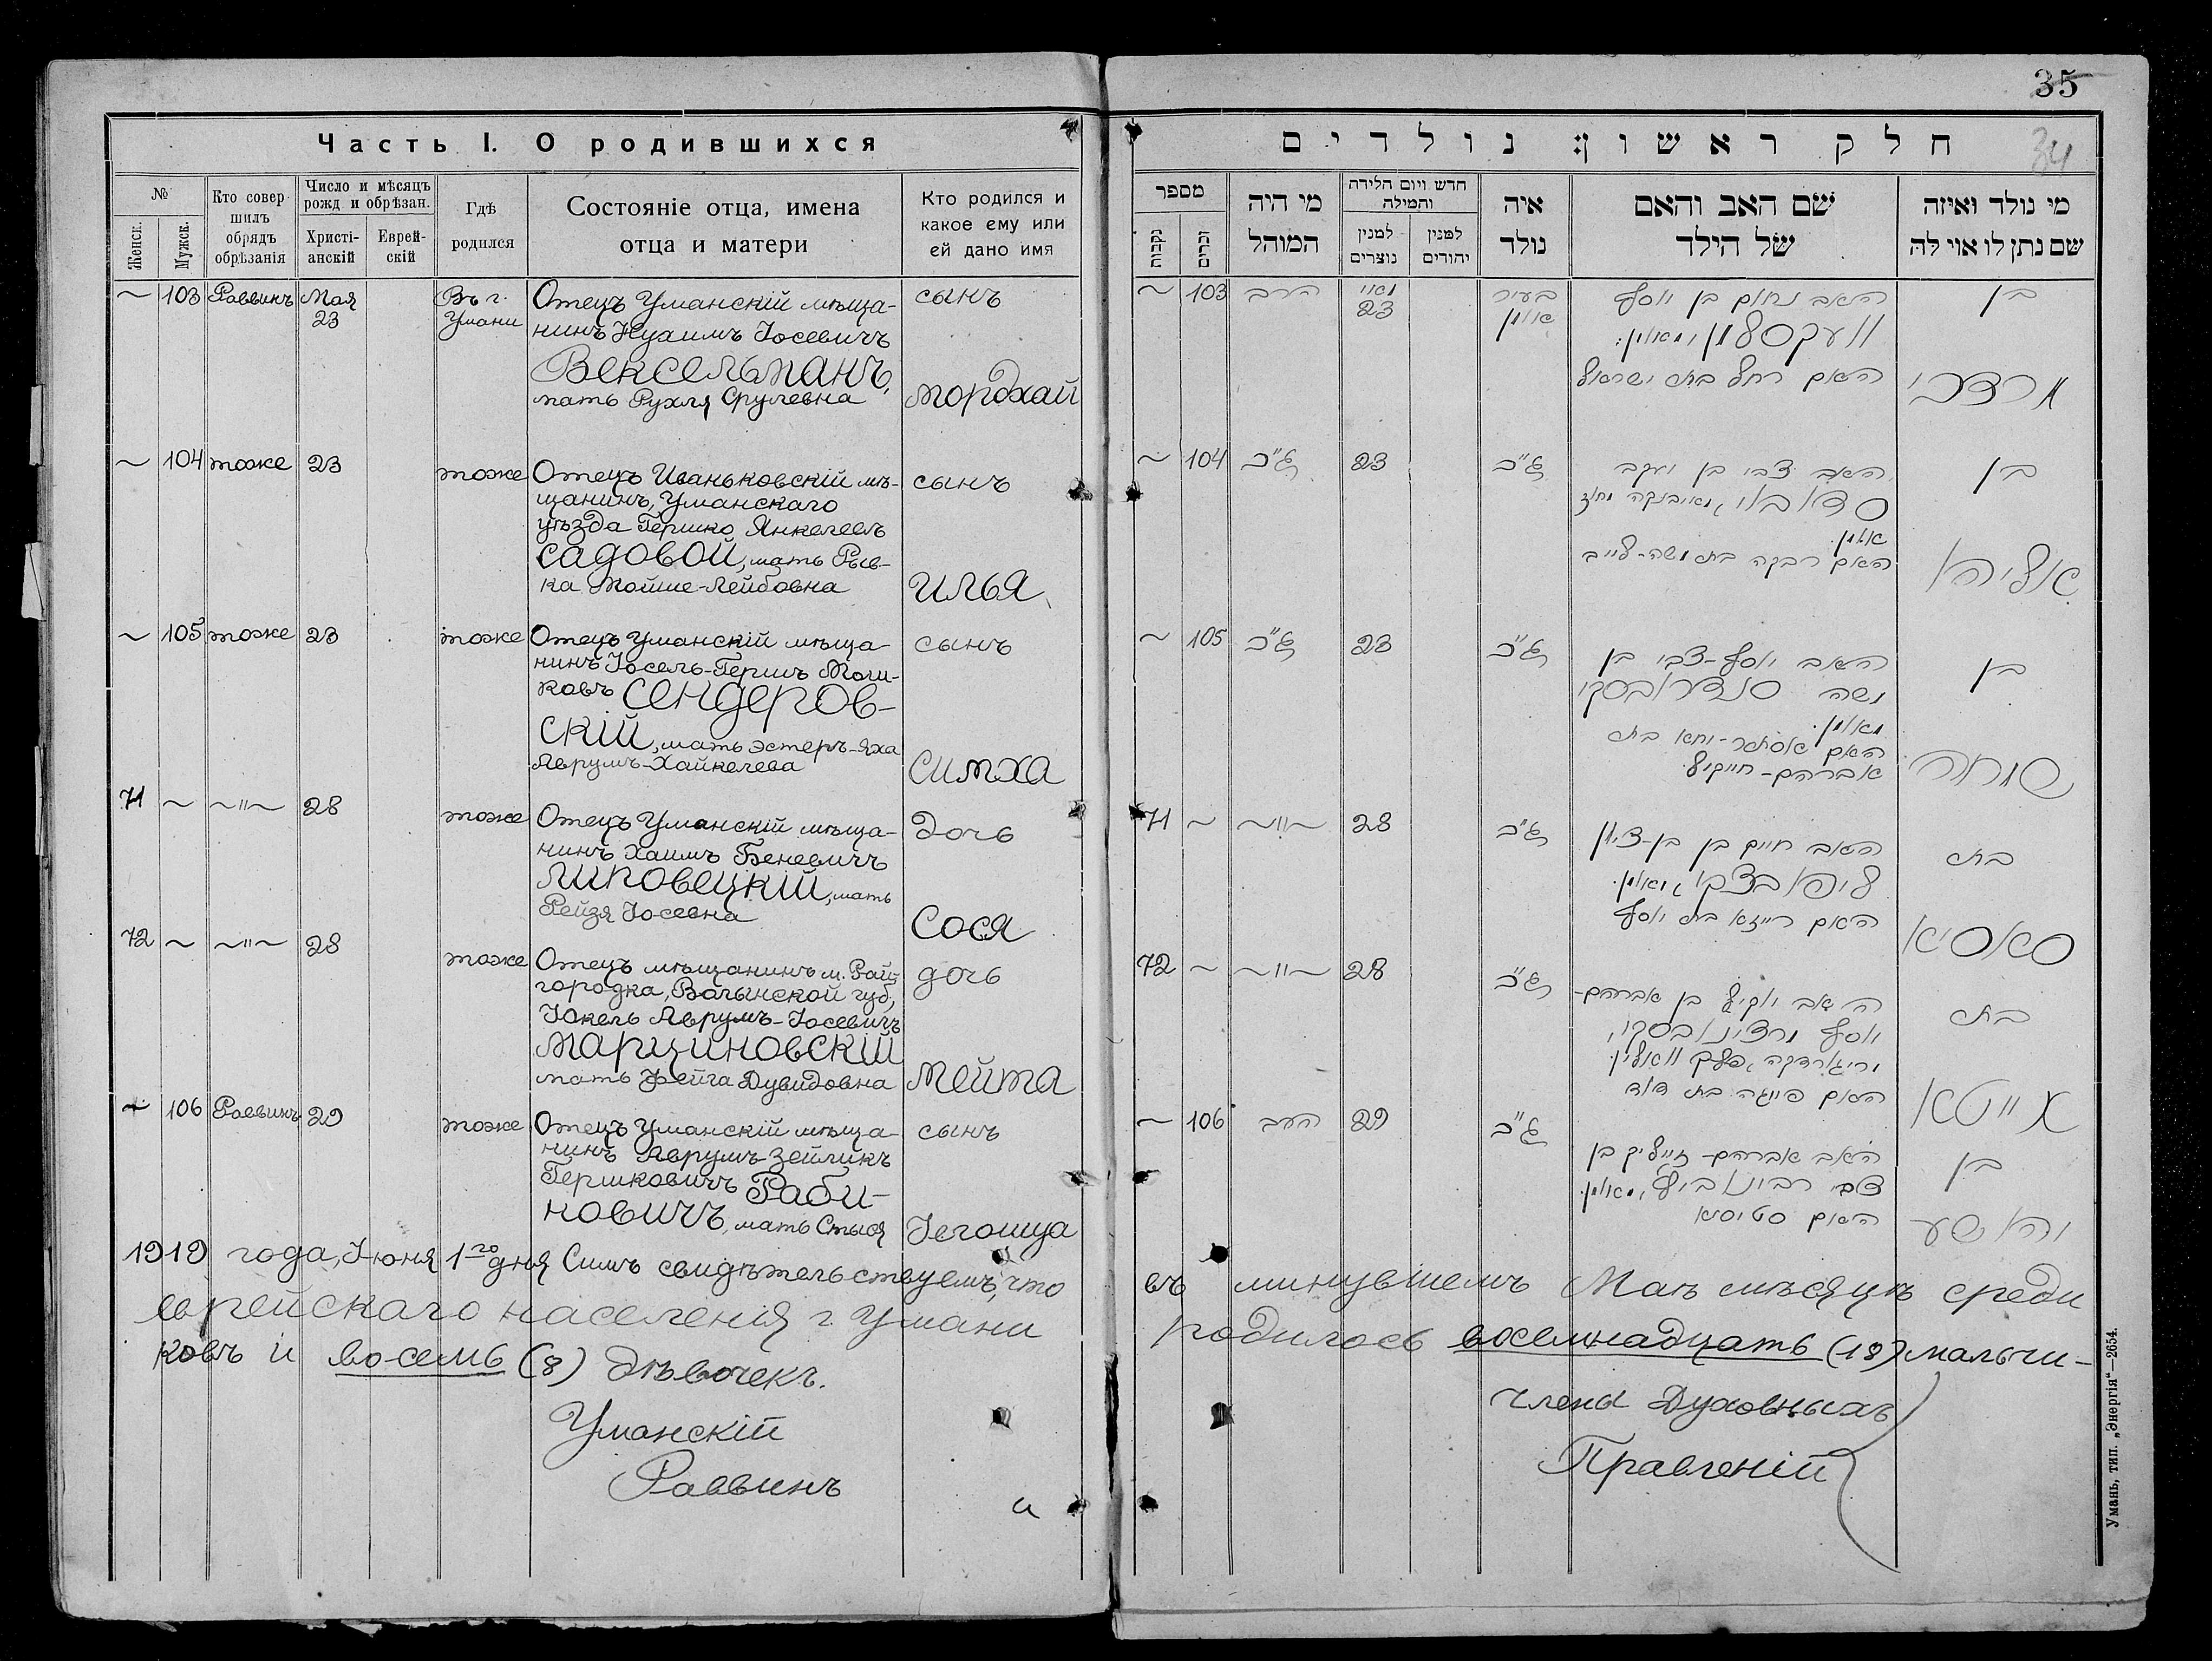 Часть I. О родившихся
№
Женск.
Мужск.
Кто совер
шилъ
обрядъ
обрѣзанія
Число и мѣсяцъ
рожд и обрѣзан.
Христі-
анскій
Еврей-
скій
Гдѣ
родился
Состояніе отца, имена
отца и матери
Кто родился и
какое ему или
ей дано имя
~ 103 Раввинъ Мая
23
Въ г.
Умани
Отецъ Уманскій мѣща-
нинъ Нухимъ Іосевичъ
Вексельманъ,
мать Рухля Срулевна
сынъ
Мордхай
~ 104 тоже 23 тоже
Отецъ Иваньковскій мѣ-
щанинъ, Уманскаго
уѣзда Гершко Янкелевъ
Садовой, мать Рыв-
ка Мойше-Лейбовна
сынъ
Илья
~ 105 тоже 23 тоже
Отецъ Уманскій мѣща-
нинъ Іосель-Гершъ Мош-
ковъ Сендеров-
скій, мать Эстеръ-Яха
Аврумъ-Хайкелева
сынъ
Симха
71 ~ ~"~ 28 тоже
Отецъ Уманскій мѣща-
нинъ Хаимъ Беневичъ
Липовецкій, мать
Рейзя Іосевна
дочь
Сося
72 ~ ~"~ 28 тоже
Отецъ мѣщанинъ м. Рай-
городка, Волынской губ,
Іокель Аврумъ-Іосевичъ
Марциновскій
мать Фейга Дувидовна
дочь
Мейта
~ 106 Раввинъ 29 тоже
Отецъ Уманскій мѣща-
нинъ Аврумъ-Зейликъ
Гершковичъ Раби-
новичъ, мать Стыся
сынъ
Іегошуа
1919 года, Іюня 1го дня Симъ свидѣтельствуемъ, что
еврейскаго населенія г. Умани
ковъ и восемь (8) дѣвочекъ.
Уманскій
Раввинъ
и
35
34
חלק ראשון: נולדים
מספר
נקבות
זכרים
מי היה
המוהל
חדש ויום הלידה
והמילה
למנין
נוצרים
למנין
יהודים
איה
נולד
שם האב והאם
של הילד
מי נולד ואיזה
שם נתן לו או לה
~ 103 הרב מאי
23
בעיר
אומן
האב נחום בן יוסף
וועקסעלמן, מאומן.
האם רחל בת ישראל
בן
מרדכי
~ 104 ג"כ 23 ג"כ
האב צבי בן יעקב
סדאבוי, מאיבנקה מחוז
אומן.
האם רבקה בת משה-לייב
בן
אליהו
~ 105 ג"כ 23 ג"כ
האב יוסף-צבי בן
משה סנדרובסקי
מאומן.
האם אסתר-יחא בת
אברהם-חייקיל
בן
שמחה
71 ~ ~"~ 28 ג"כ
האב חיים בן בן-ציון
ליפאבצקי, מאומן.
האם רייזא בת יוסף
בת
סאסיא
72 ~ ~"~ 28 ג"כ
האב יוקיל בן אברהם-
יוסף מרצינובסקי,
מרייגארדקה, פלך וואלין.
האם פייגה בת דוד
בת
מייטא
~ 106 הרב 29 ג"כ
האב אברהם-זייליק בן
צבי רבינוביץ, מאומן.
האם סטיסיא
בן
יהושע
въ минувшемъ Маѣ мѣсяцѣ среди
родилось восемнадцать (18) мальчи-
Члены Духовныхъ
Правленій
Умань, тип. „Энергія"—2654.